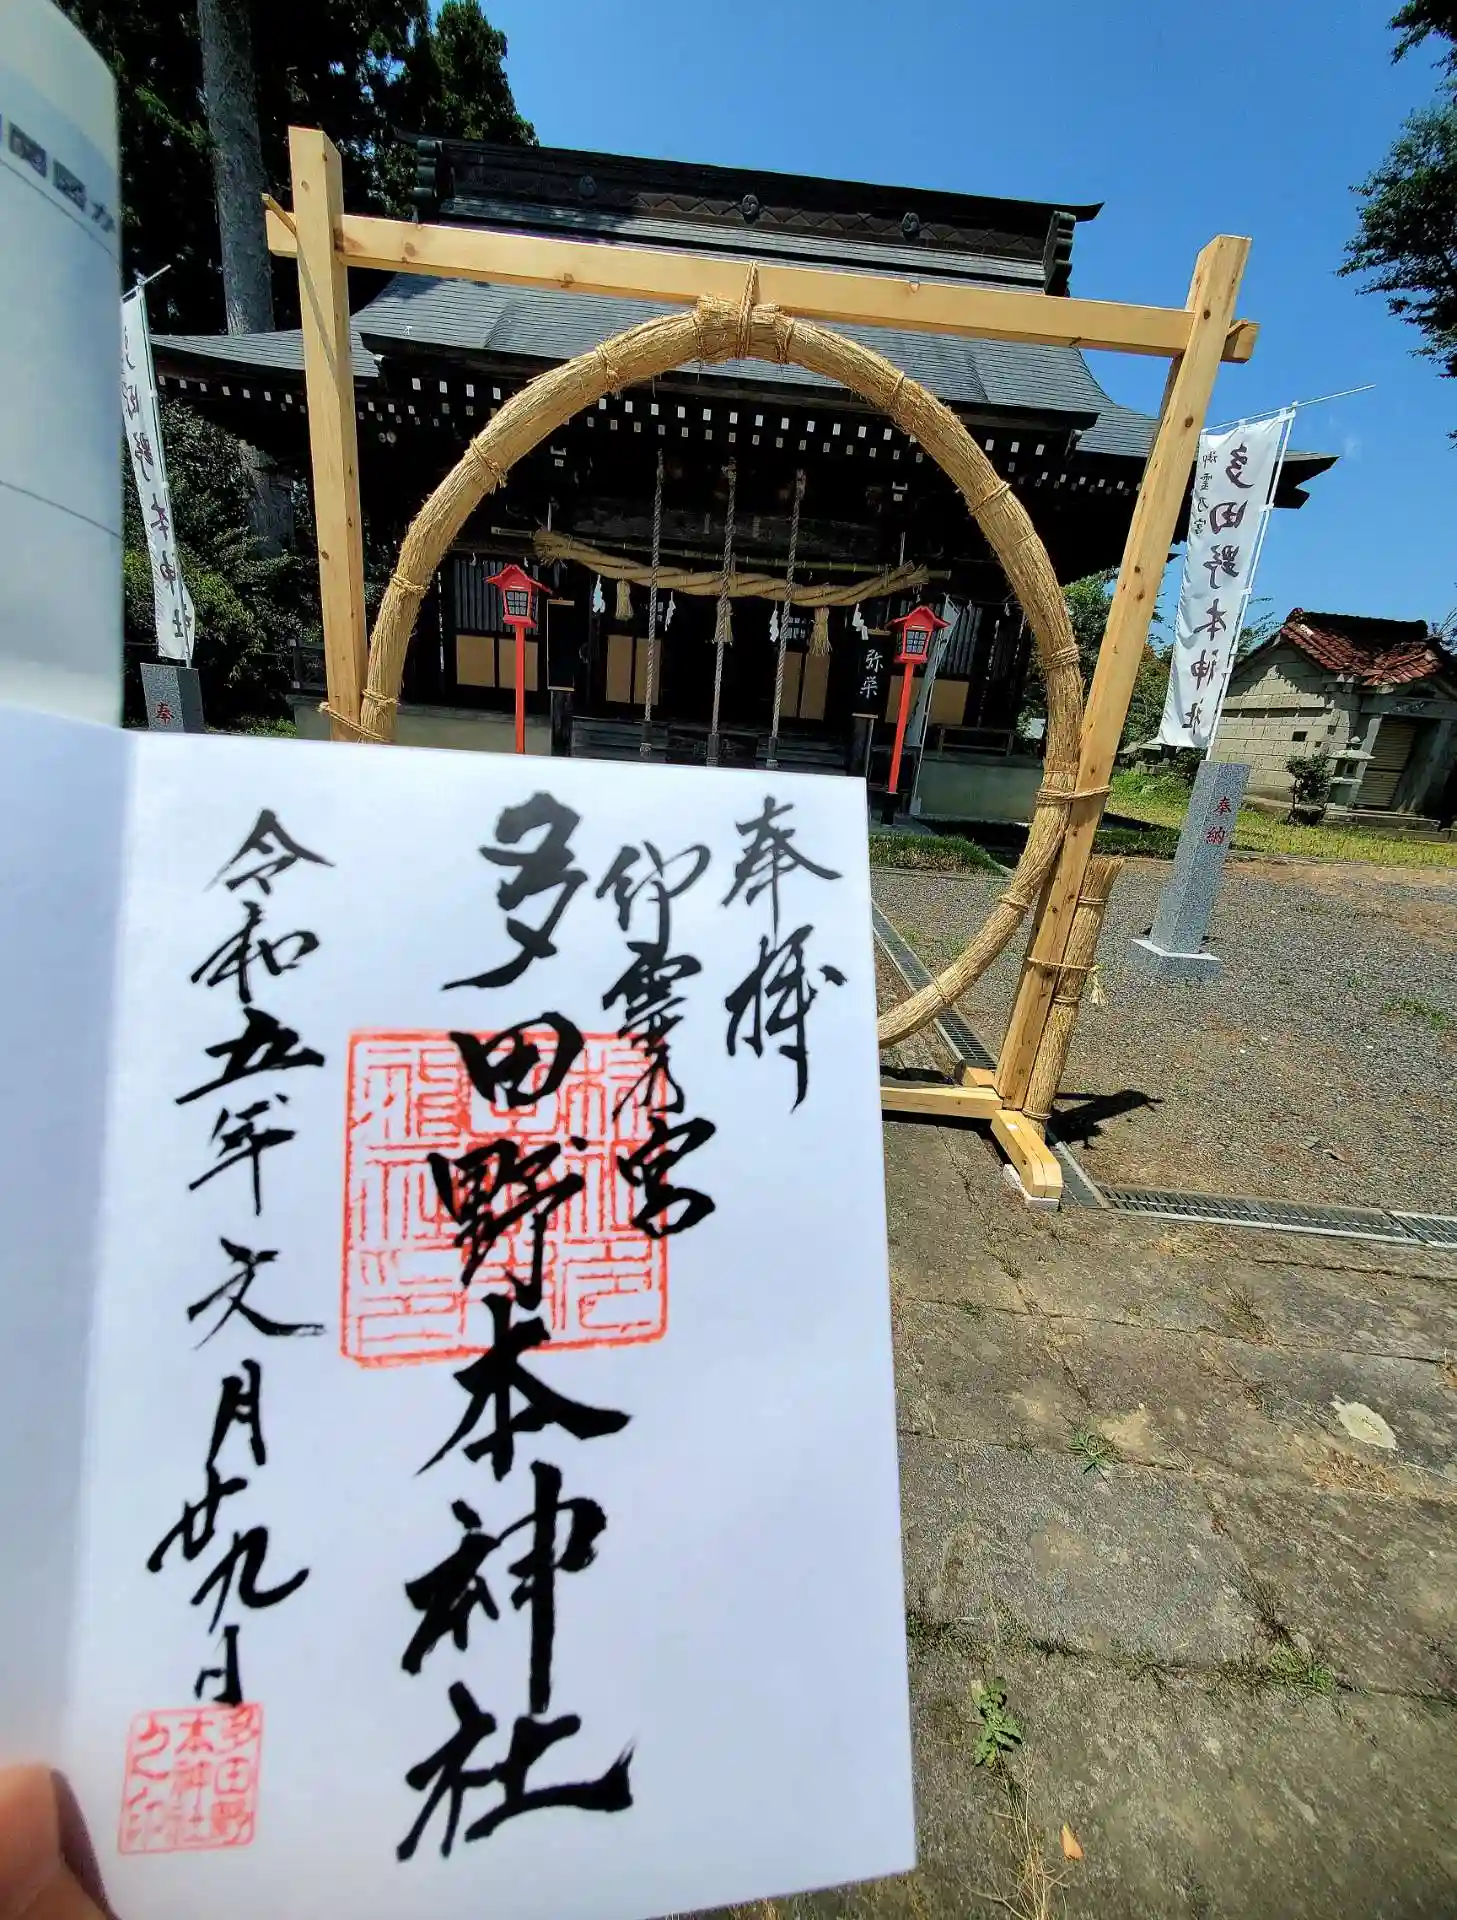 奉拝
御霊乃宮
多田野本神社
令和五年文月廿九日
多田野
本神社
之印
多田野本神社
奉
弥栄
多田野本神社
御霊乃宮
奉納